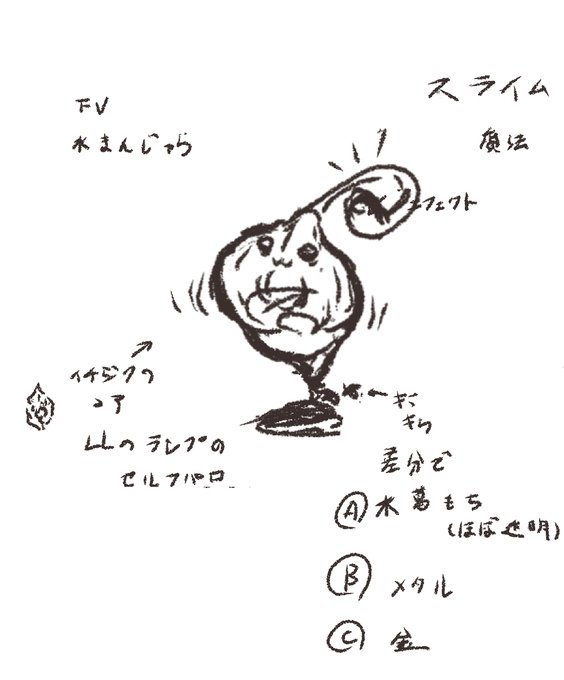 スライム
魔法
FV
水まんじゅう
エフェクト
イチジクの
コア
LLのランプの
セルフパロ
差分で
Ⓐ 水葛もち
(ほぼ透明)
Ⓑ メタル
Ⓒ 金